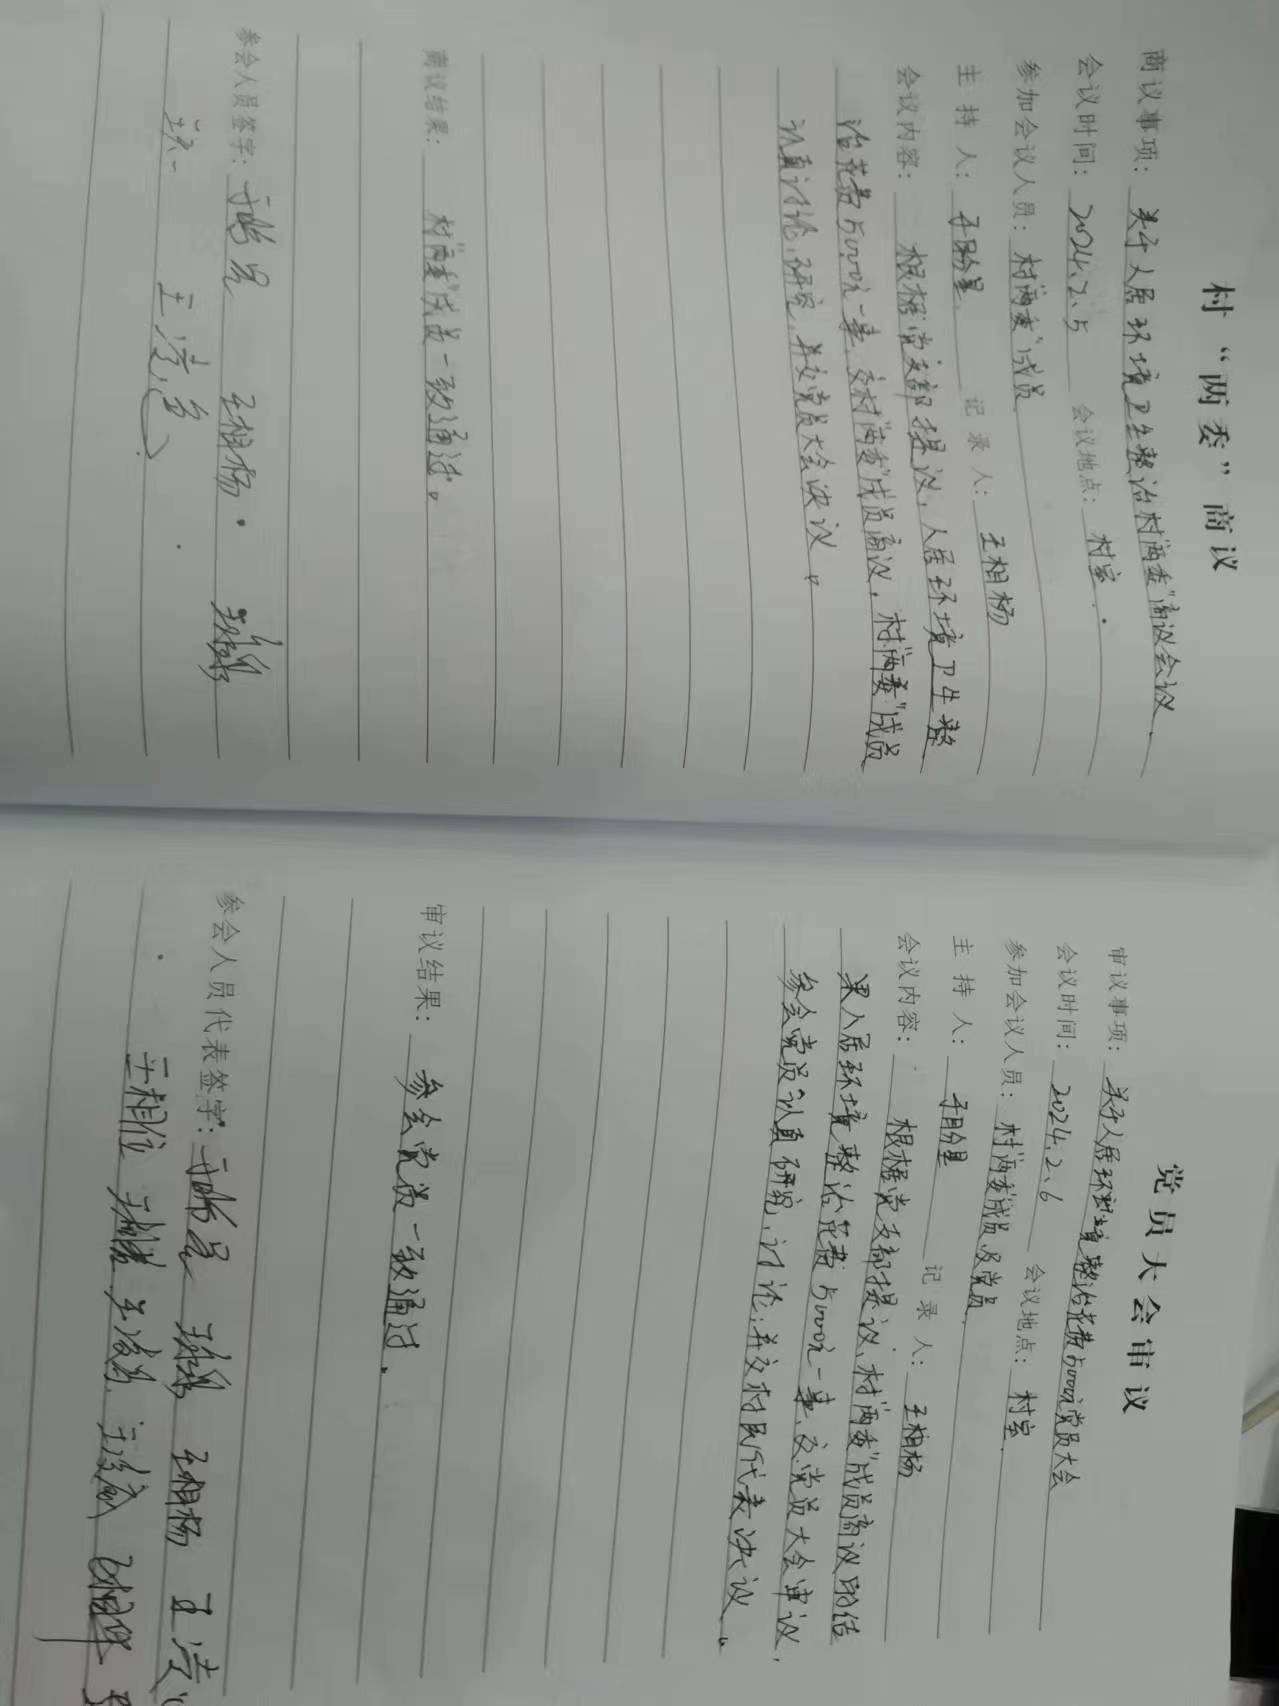 村“两委”商议
商议事项：关于人居环境卫生整治村“两委”商议会议
会议时间：2024.2.5 会议地点：村室.
参加会议人员：村“两委”成员
主 持 人： 记 录 人：王相杨
会议内容：根据党支部提议，人居环境卫生整
治花费5000元一事，交村“两委”成员商议，村“两委”成员
认真讨论，研究，并交党员大会决议。
商议结果：村“两委”成员一致通过。
参会人员签字： 王相杨.
党员大会审议
审议事项：关于人居环境整治花费5000元党员大会
会议时间：2024.2.6 会议地点：村室.
参加会议人员：村“两委”成员及党员
主 持 人： 记 录 人：王相杨
会议内容：根据党支部提议、村“两委”成员商议的结
果人居环境整治花费5000元一事、交党员大会审议，
参会党员认真研究，讨论；并交村民代表决议。
审议结果：参会党员一致通过.
参会人员代表签字： 王相杨